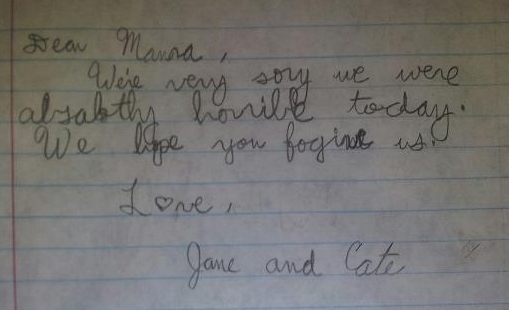 Dear Mama,
We're very sory we were
absaltly horrible today.
We hope you fogive us.
Love,
Jane and Cate